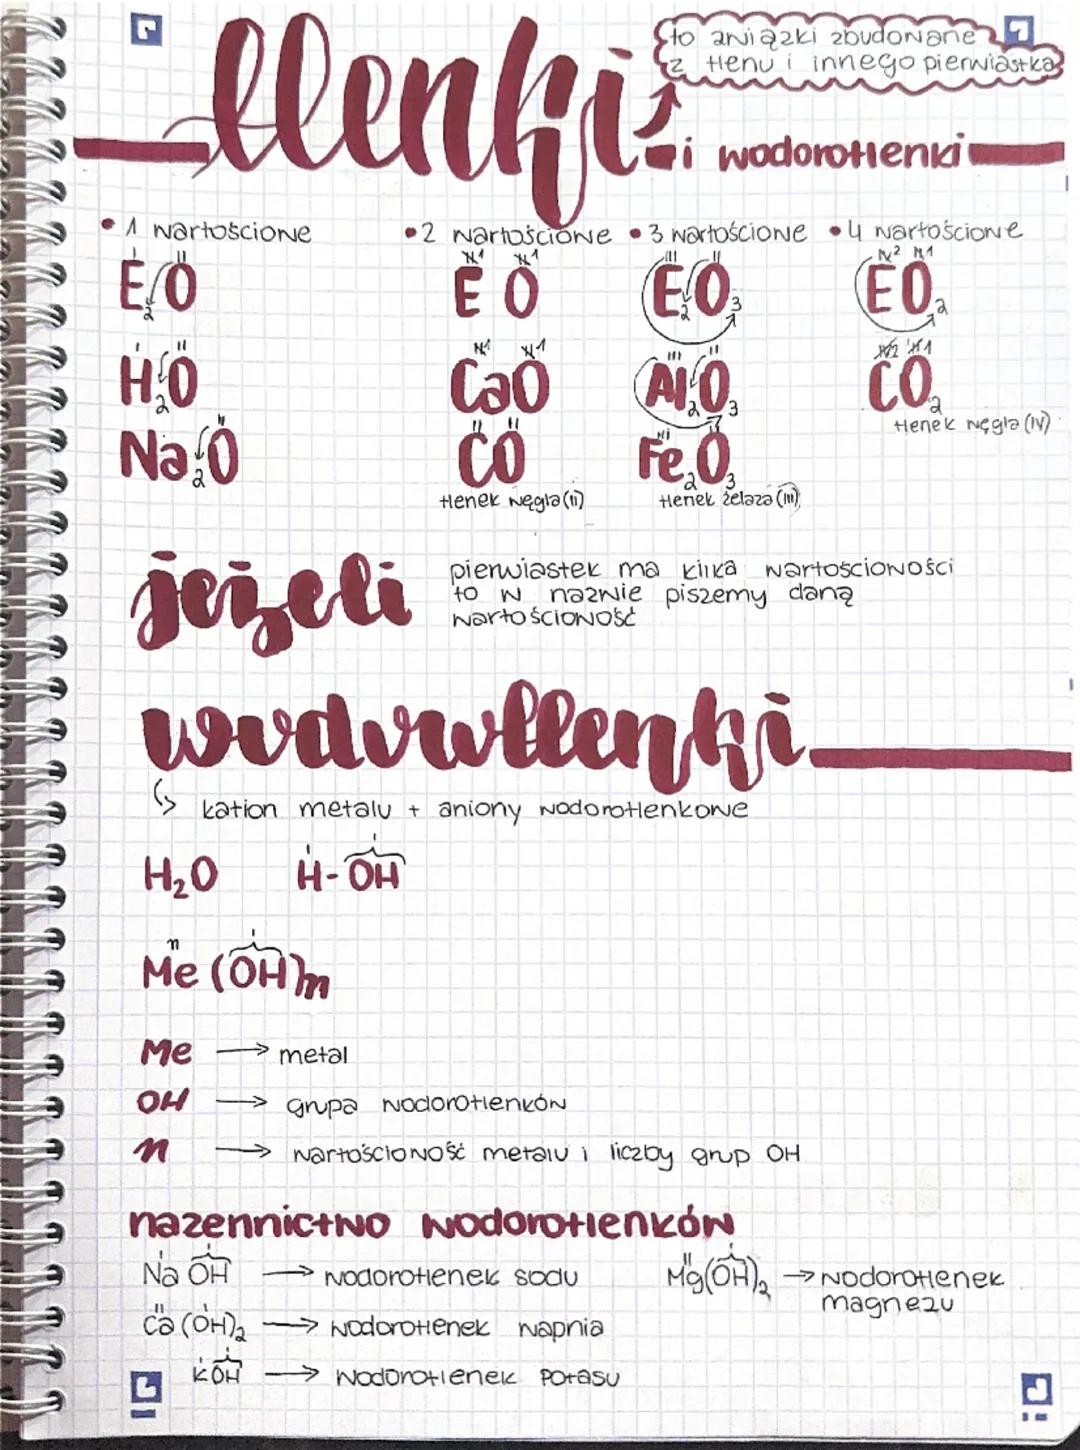 tlenki
to związki zbudowane
z tlenu i innego pierwiastka
i wodorotlenki
• 1 wartościowe
• 2 wartościowe
• 3 wartościowe
• 4 wartościowe
E₂O
E O
E₂O₃
EO₂
H₂O
CaO
Al₂O₃
CO₂
tlenek węgla (IV)
Na₂O
CO
Fe₂O₃
tlenek węgla (II)
tlenek żelaza (III)
jeżeli
pierwiastek ma kilka wartościowości
to w nazwie piszemy daną
wartościowość
wodorotlenki
↳ kation metalu + aniony wodorotlenkowe
H₂O H-OH
Me (OH)n
Me → metal
OH → grupa wodorotlenków
n → wartościowość metalu i liczby grup OH
nazennictwo wodorotlenków
Na OH → wodorotlenek sodu
Mg(OH)₂ → wodorotlenek
magnezu
Ca (OH)₂ → wodorotlenek wapnia
KOH → wodorotlenek potasu